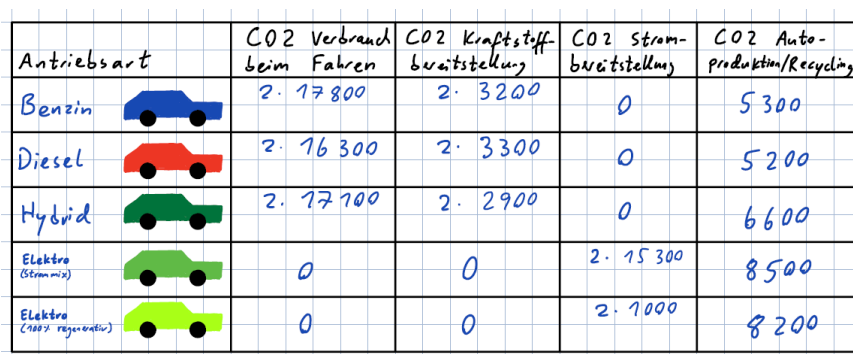 Antriebsart
CO2 Verbrauch beim Fahren
CO2 Kraftstoff-
bereitstellung
CO2 Strom-
bereitstellung
CO2 Auto-
produktion/Recycling
Benzin 2. 17800 2. 3200 0 5300
Diesel 2. 16300 2. 3300 0 5200
Hybrid 2. 17100 2. 2900 0 6600
Elektro
(Strommix) 0 0 2. 15300 8500
Elektro
(100% regenerativ) 0 0 2. 1000 8200